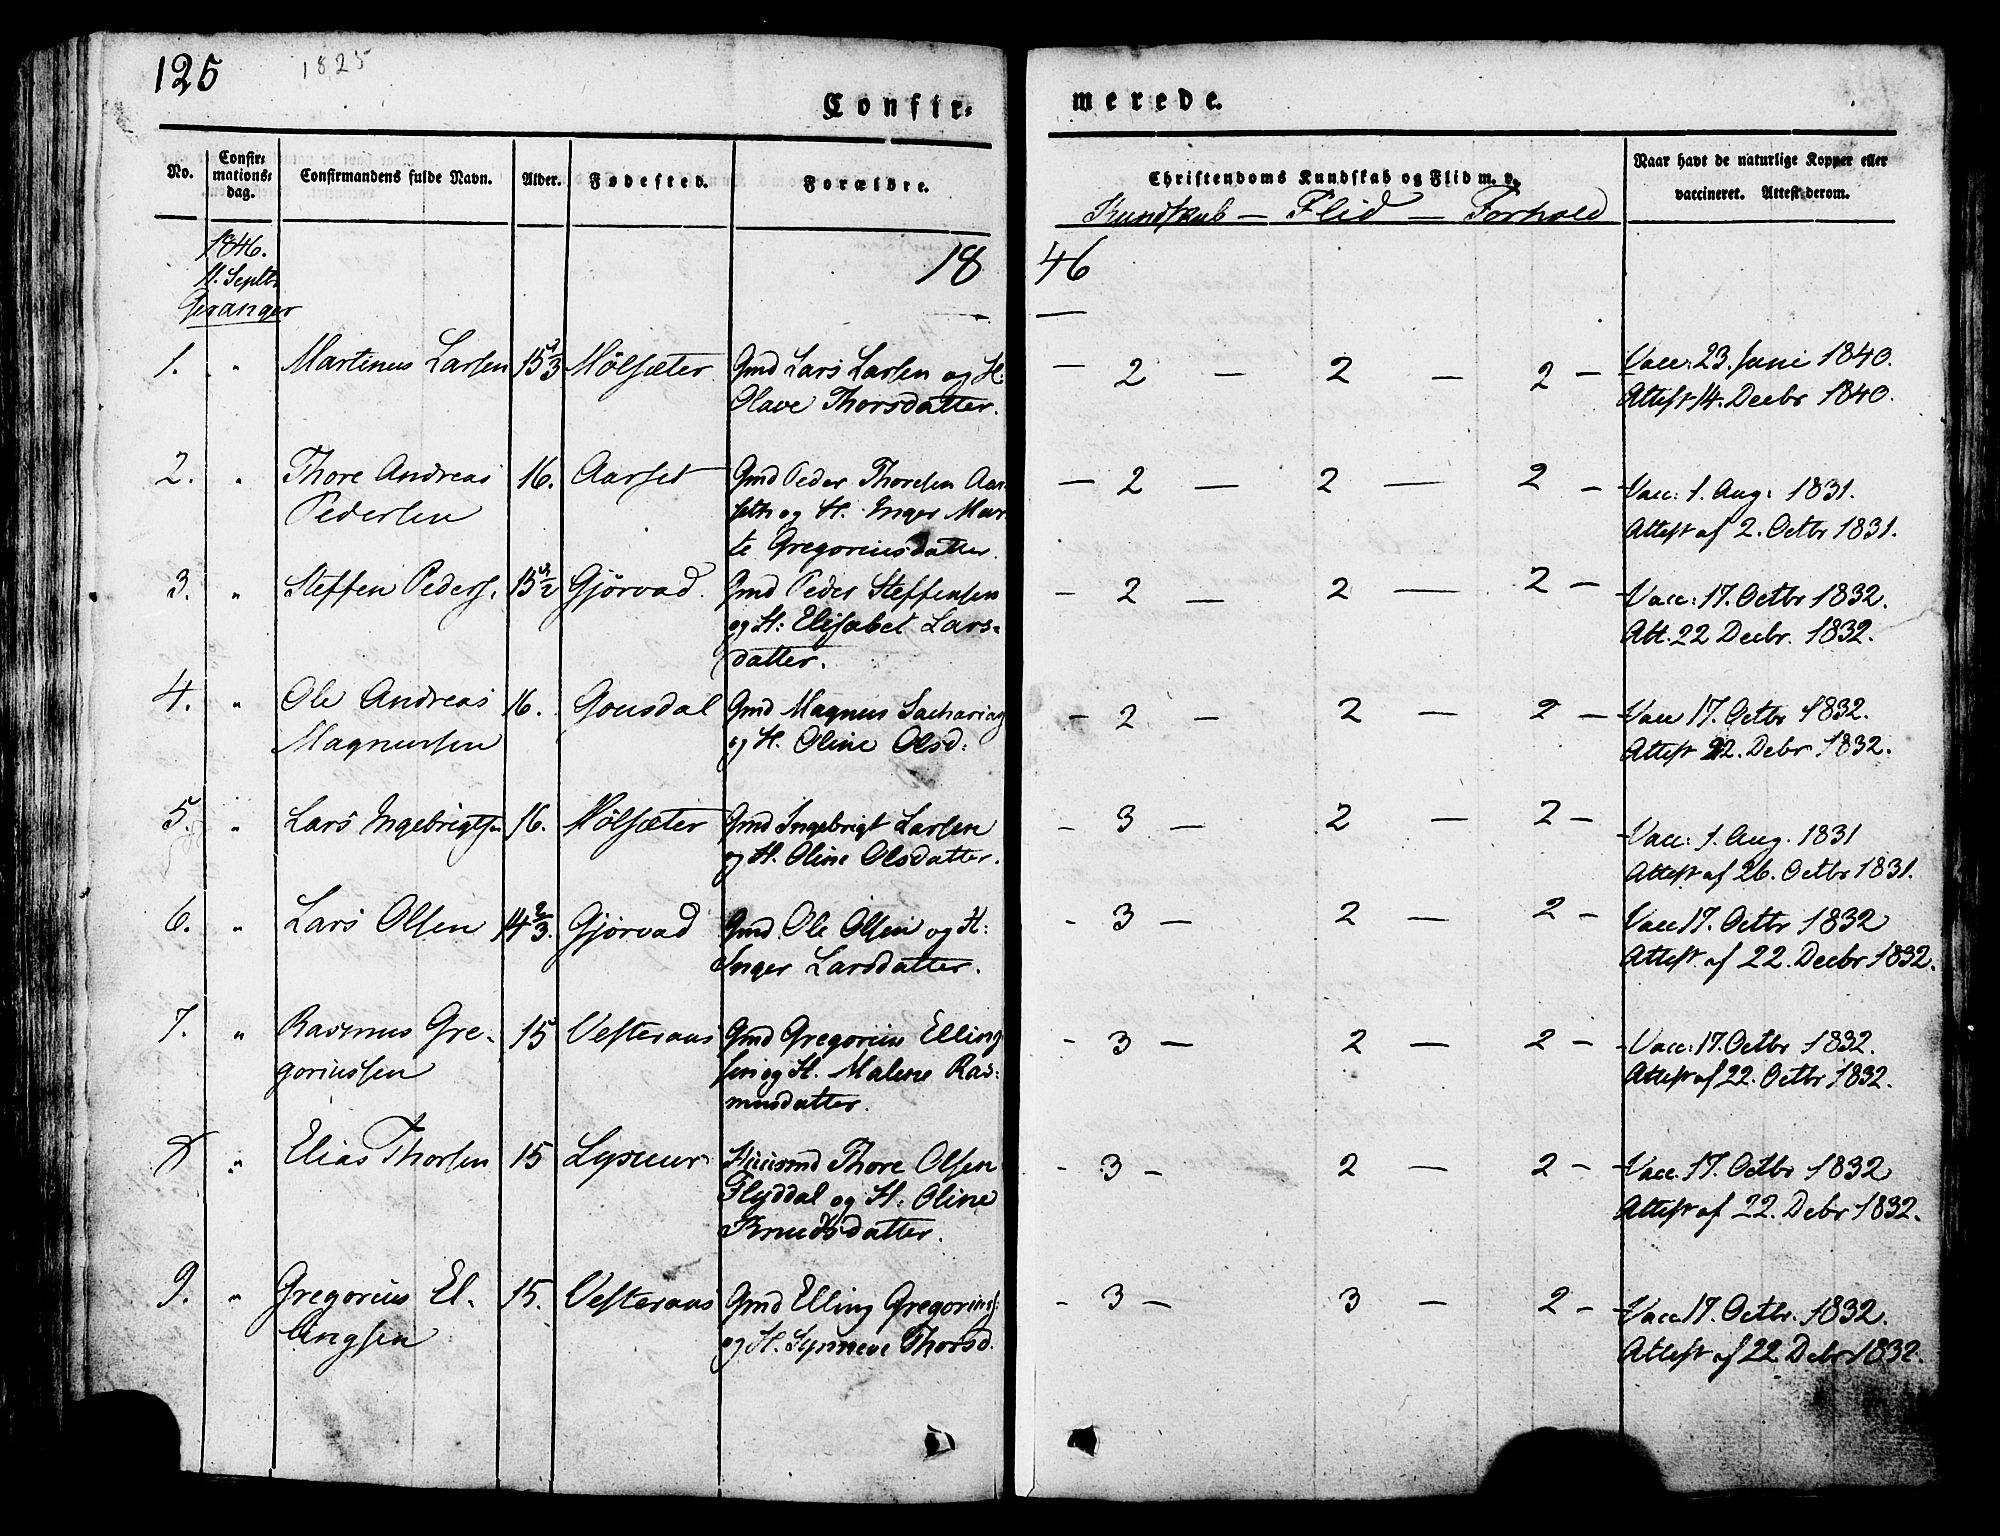 125 1825
Confir= merede.
No. Confir=mations=dag. Confirmandens fulde Navn. Alder. Fødested. Forældre. Christendoms Kundskab og Flid m. v. Naar havt de naturlige Kopper eller vaccineret. Attest derom.
Kundskab — Flid — Forhold
1846. 18 46
11. Septbr
Geranger
1. " Martinus Larsen 15 1/3 Hølsæter Gmd Lars Larsen og H. — 2 — 2 — 2 — Vacc: 23. Juni 1840.
Olave Thorsdatter. Attest 14. Decbr 1840.
2. " Thore Andreas 16. Aarset Gmd Peder Thoresen Aar — 2 — 2 — 2 — Vacc: 1. Aug: 1831.
Pedersen seth og H. Inger Mar Attest af 2. Octbr 1831.
te Gregoriusdatter.
3. " Steffen Peders. 15 1/2 Gjørvad. Gmd Peder Steffensen - 2 — 2 — 2 — Vacc: 17. Octbr 1832.
og H: Elisabet Lars= Att. 22 Decbr. 1832.
datter.
4. " Ole Andreas 16. Gousdal Gmd Magnus Sacharias - 2 - 2 — 2 — Vacc 17. Octbr 1832.
Magnussen og H. Oline Olsd: Attest 22. Debr 1832.
5. " Lars Ingebrigtsen 16. Hølsæter Gmd Ingebrigt Larsen - 3 — 2 — 2 - Vacc: 1. Aug. 1831
og H. Oline Olsdatter. Attest af 26. Octbr 1831.
6. " Lars Olsen 14 2/3. Gjørvad Gmd. Ole Olsen og H: - 3 — 2 — 2 - Vacc 17. Octbr 1832
Inger Larsdatter. Attest af 22. Decbr 1832.
7. " Rasmus Gre- 15 Vesteraas Gmd Gregorius Elling - 3 — 2 — 2 - Vacc: 17. Octbr 1832.
goriussen sen og H. Malene Ras= Attest af 22. Octbr 1832.
musdatter.
8 " Elias Thorsen 15 Huusmd Thore Olsen - 3 - 2 — 2 - Vacc. 17. Octbr 1832
Flyddal og H: Oline Attest af 22. Debr 1832.
Knudsdatter.
9. " Gregorius El- 15. Vesteraas Gmd Elling Gregorius - 3 — 3 — 2 - Vacc 17. Octbr. 1832.
lingsen og H. Synneve Thorsd. Attest af 22 Debr 1832.